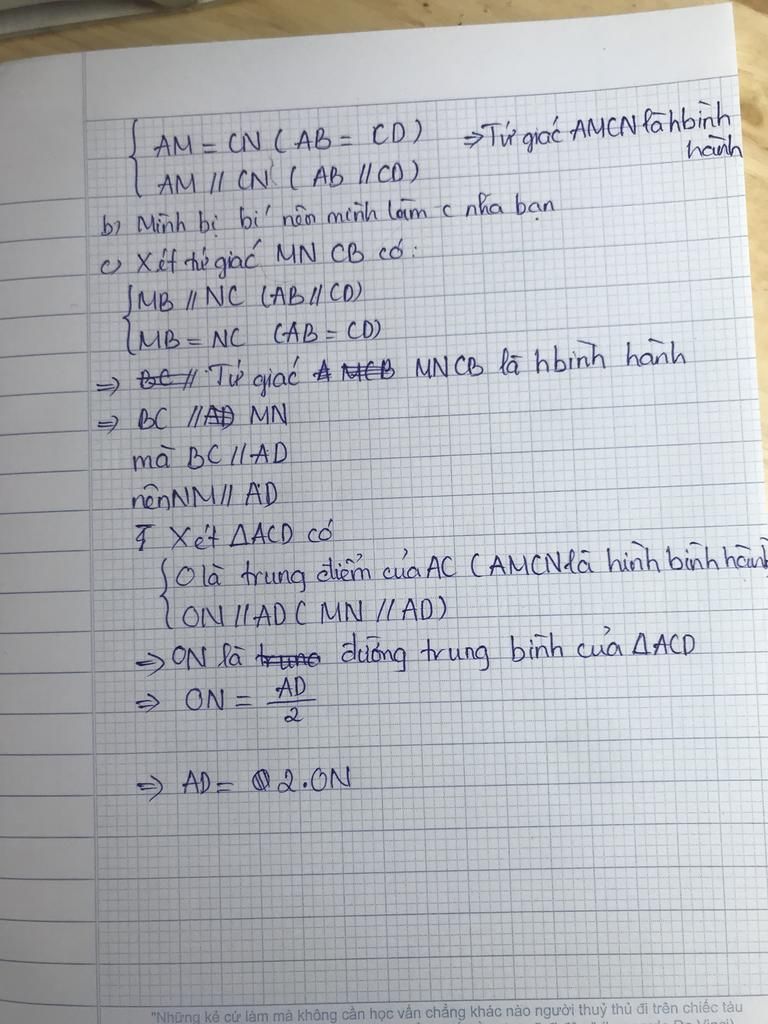 { AM = CN ( AB = CD) ⇒ Tứ giác AMCN là hbình hành
AM // CN ( AB // CD)
b) Mình bị bí nên mình làm c nha bạn
c) Xét tứ giác MN CB có:
{ MB // NC (AB // CD)
MB = NC (AB = CD)
⇒ Tứ giác MNCB là hbình hành
⇒ BC // MN
mà BC // AD
nên NM // AD
Xét ΔACD có
{ O là trung điểm của AC ( AMCN là hình bình hành
ON // AD ( MN // AD)
⇒ ON là đường trung bình của ΔACD
⇒ ON = AD/2
⇒ AD = 2.ON
"Những kẻ cứ làm mà không cần học vấn chẳng khác nào người thuỷ thủ đi trên chiếc tàu